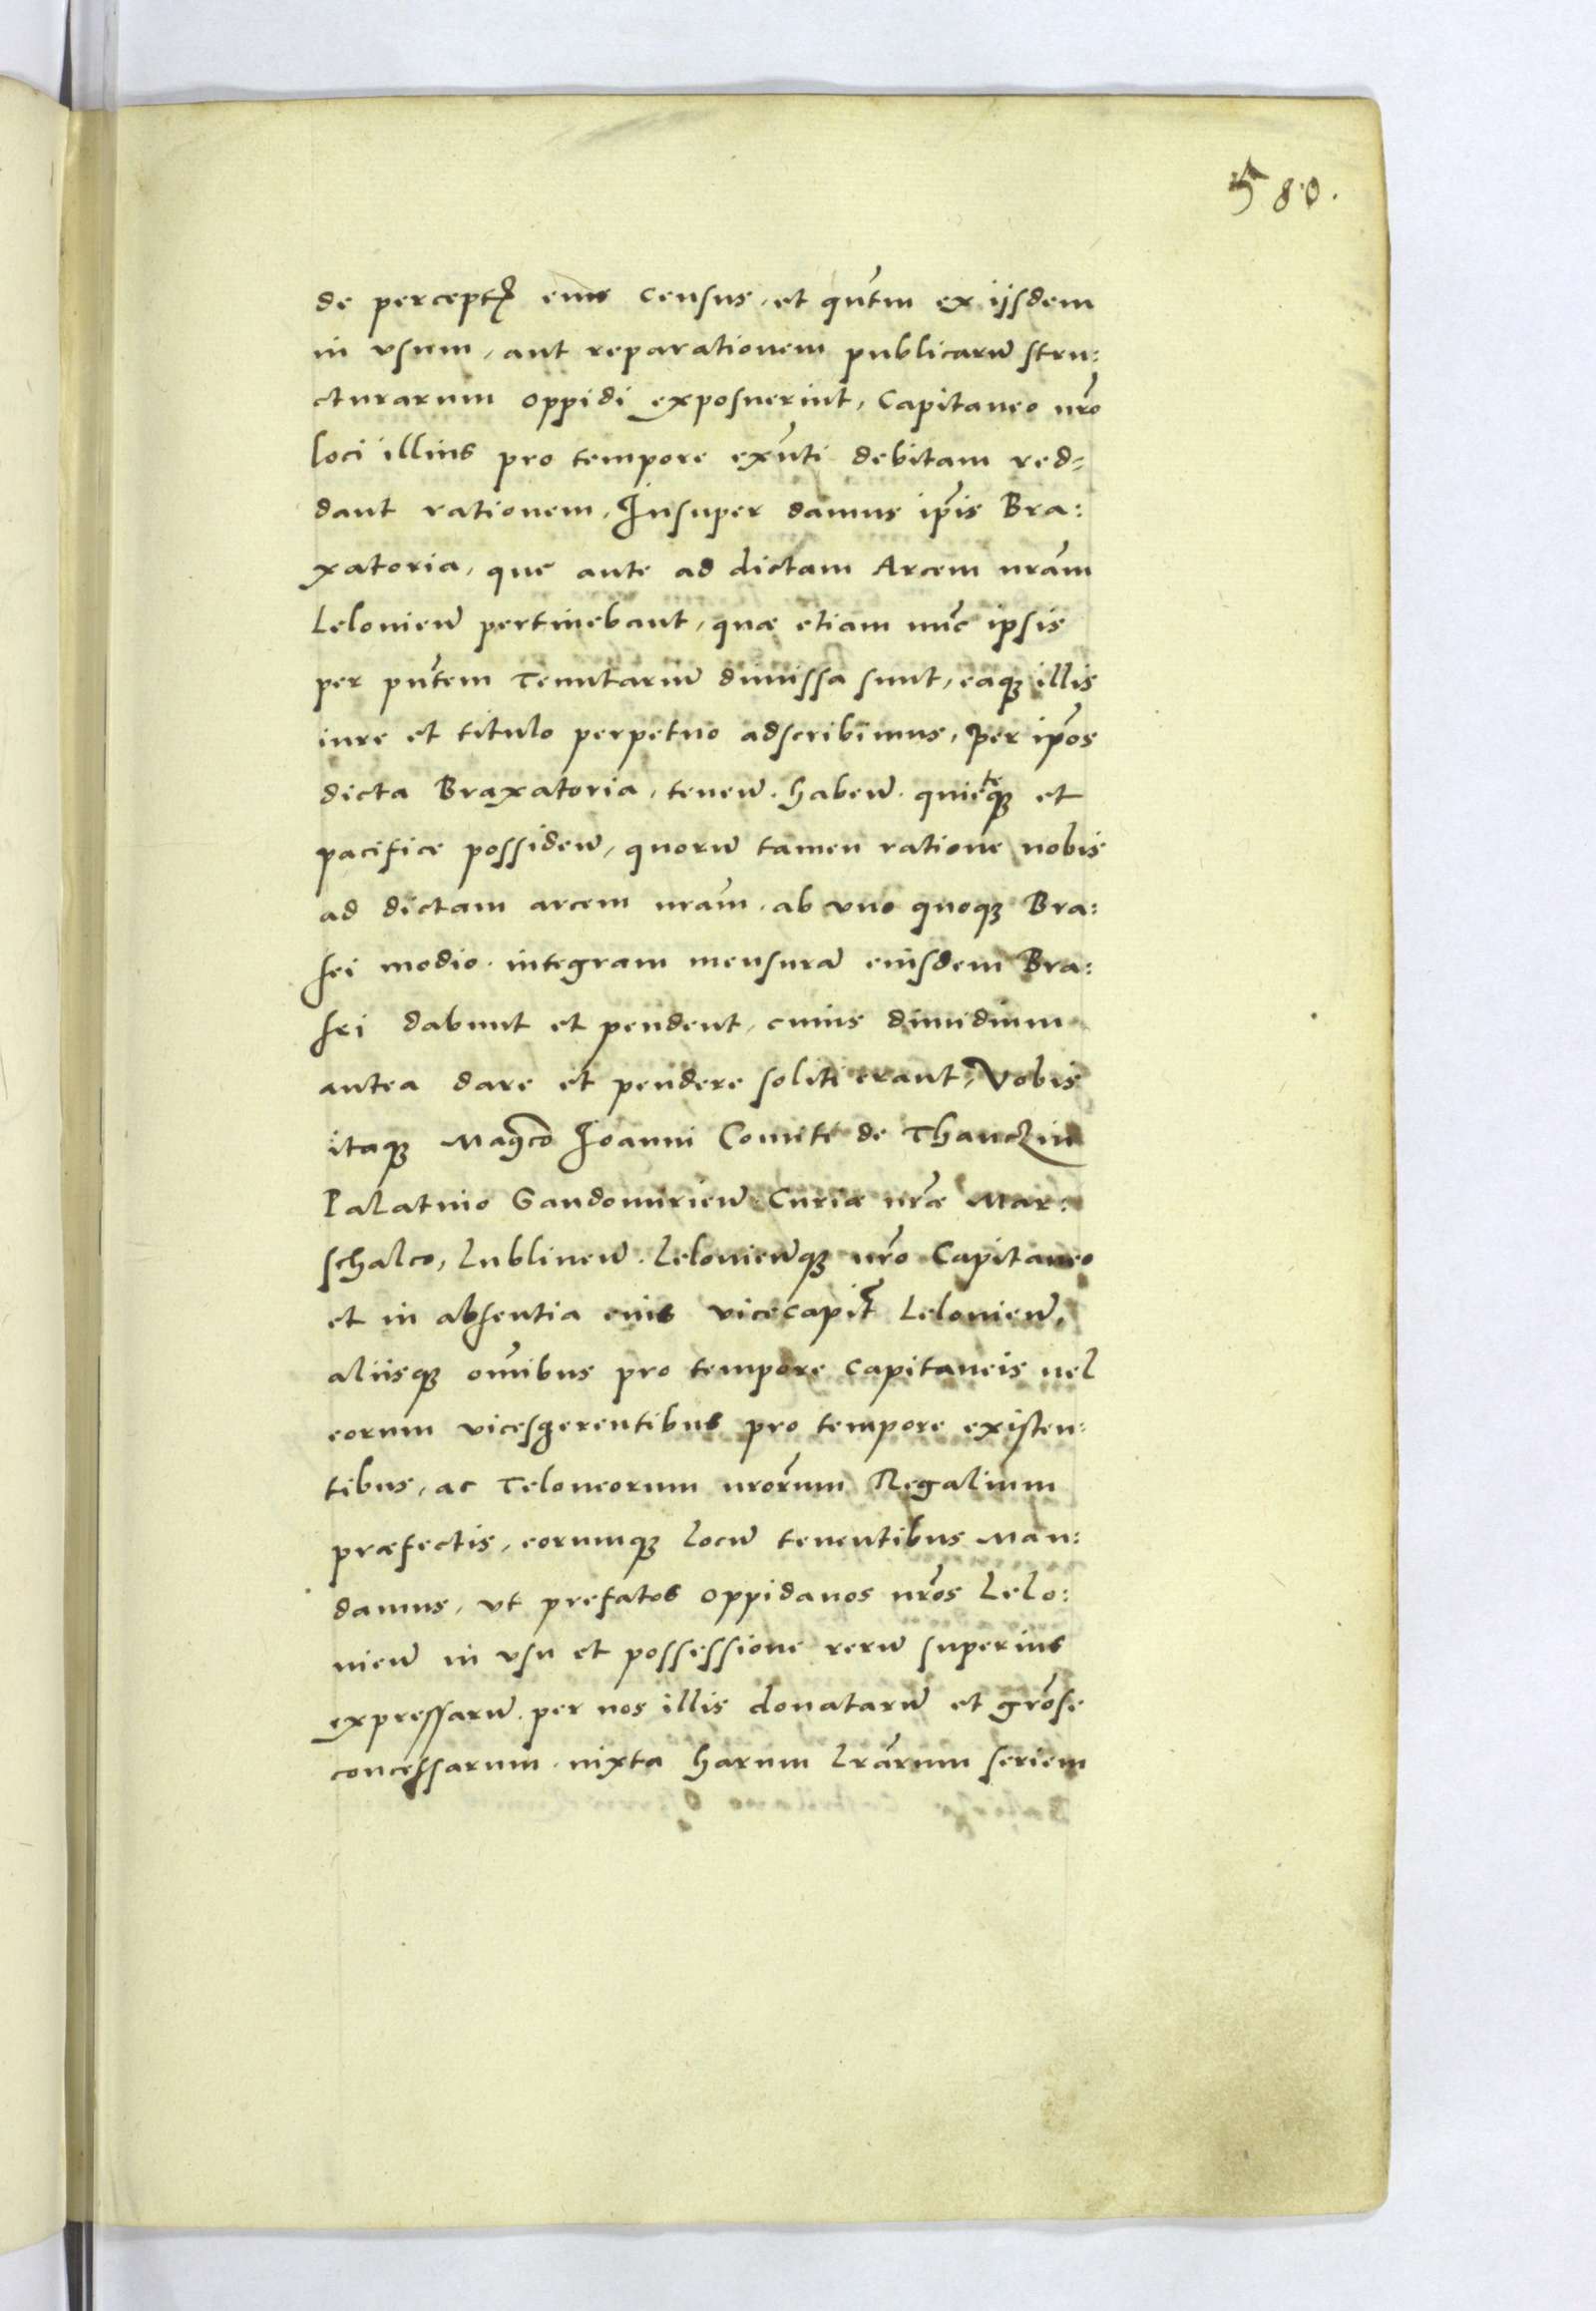 580.
de percept̃ eius census, et qñtm ex ijsdem
in vsum, aut reparationem publicarũ stru:
cturarum oppidi exposuerint, Capitaneo nr̃o
loci illius pro tempore exñti debitam red=
dant rationem, Insuper damus ip̃is Bra:
xatoria, que ante ad dictam Arcem nr̃am
Lelonien̄ pertinebant, quæ etiam nũc ipsis
per pñtem Tenutariũ dimissa sunt, eaqꝫ illis
iure et titulo perpetuo adscribimus, Per ip̃os
dicta Braxatoria, tenen̄. haben̄. quieteqꝫ et
pacifice possiden̄, quorũ tamen ratione nobis
ad dictam arcem nr̃am. ab vno quoqꝫ Bra:
sei modio. integram mensurã eiusdem Bra:
sei dabunt et pendent, cuius dimidium
antea dare et pendere soliti erant, Vobis
itaqꝫ Mag̃co Joanni Comiti de Thanczin
Palatino Sandomirien̄. Curiæ nr̃æ Mar:
schalco, Lublinen̄. Lelonien̄qꝫ nr̃o Capitaneo
et in absentia eius vicecapit̃ Lelonien̄,
aliisqꝫ om̃ibus pro tempore Capitaneis uel
eorum vicesgerentibus pro tempore existen:
tibus, ac Teloneorum nr̃orum Regalium
præfectis, eorumqꝫ locũ tenentibus Man:
damus, vt prefatos oppidanos nr̃os Lelo:
nien̄ in vsu et possessione rerũ superius
expressarũ. per nos illis donatarũ et gr̃ose
concessarum. iuxta harum lr̃arum seriem